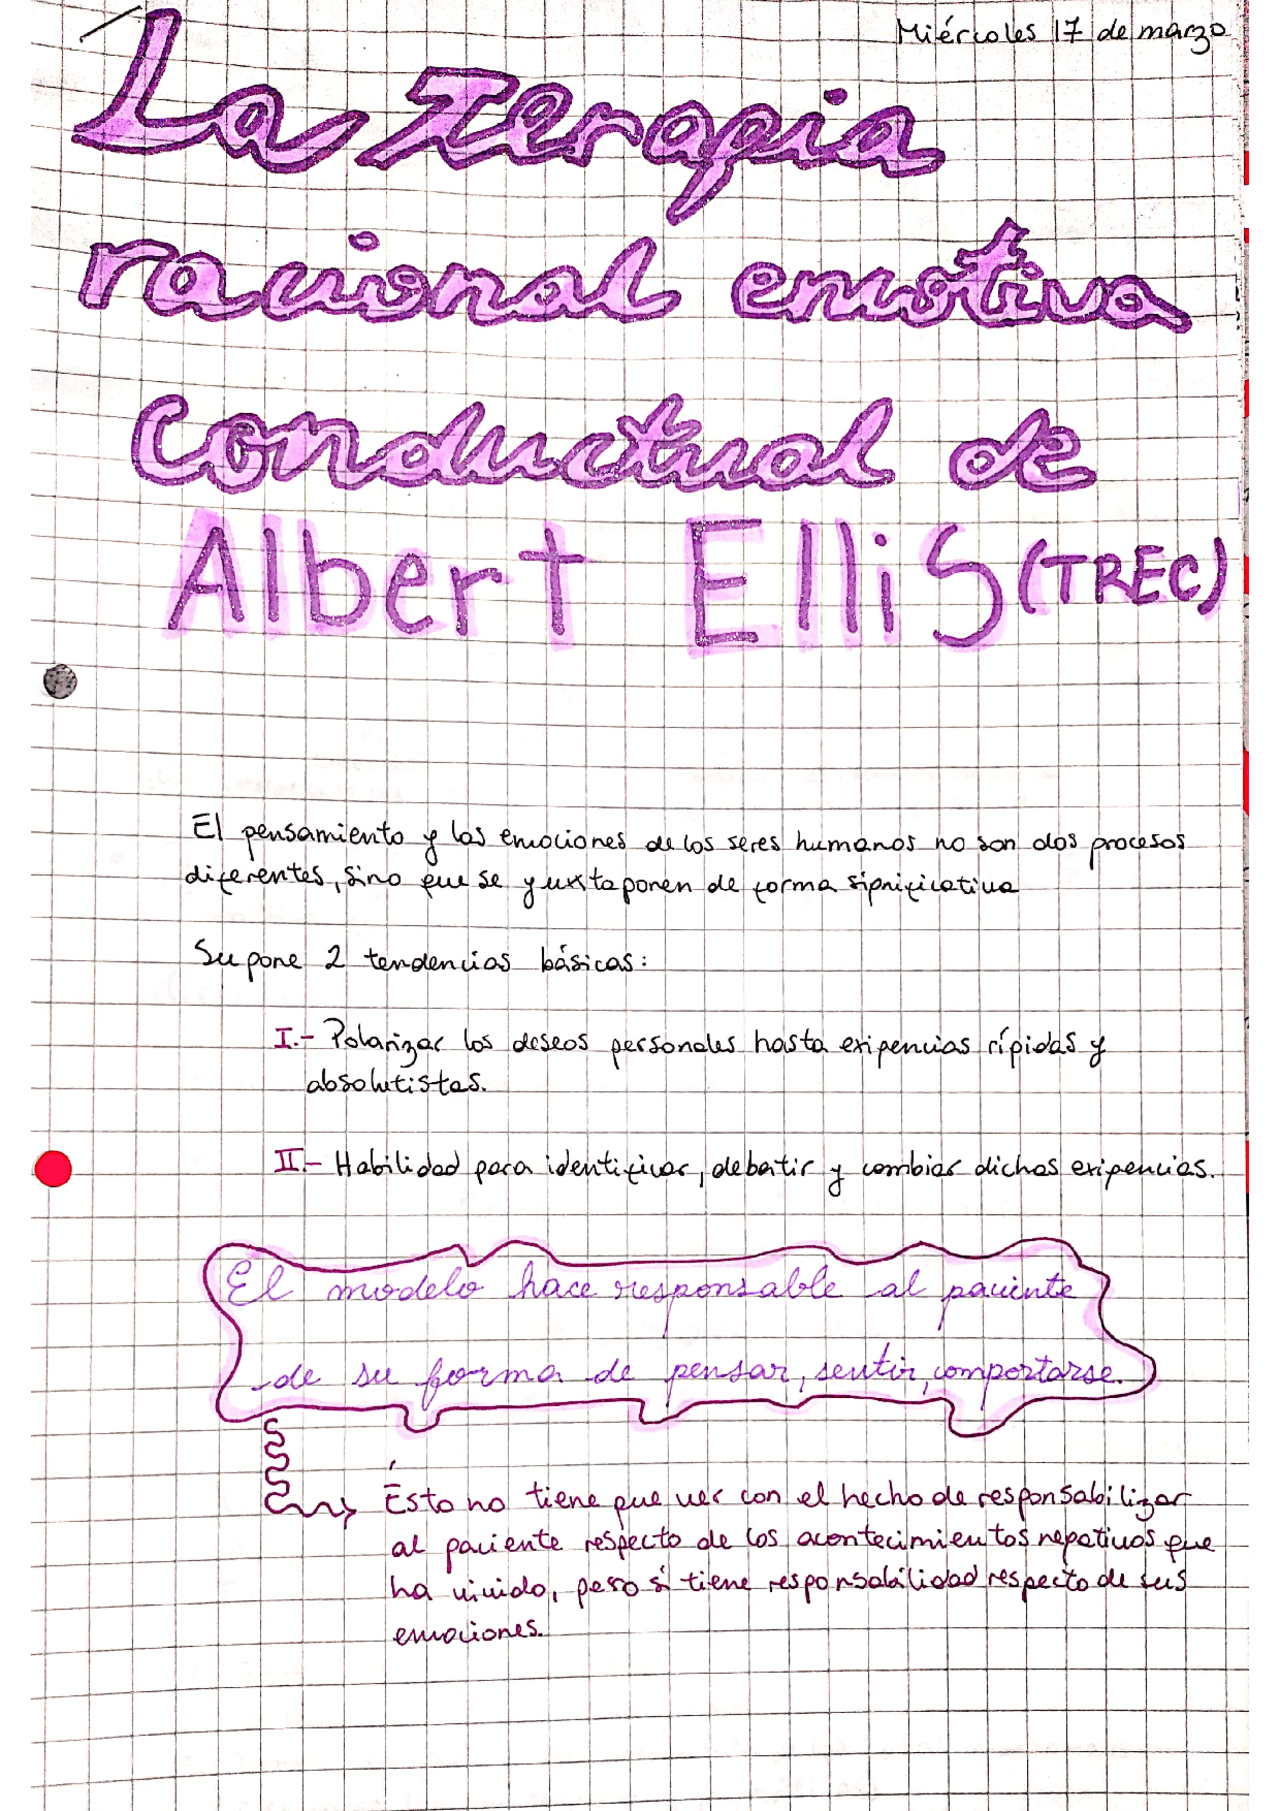 Miércoles 17 de marzo
La Terapia
racional emotiva
conductual de
Albert Ellis (TREC)
El pensamiento y las emociones de los seres humanos no son dos procesos
diferentes, sino que se yuxtaponen de forma significativa
Supone 2 tendencias básicas:
I.- Polarizar los deseos personales hasta exigencias rígidas y
absolutistas.
II.- Habilidad para identificar, debatir y cambiar dichas exigencias.
El modelo hace responsable al paciente
de su forma de pensar, sentir, comportarse.
Ésto no tiene que ver con el hecho de responsabilizar
al paciente respecto de los acontecimientos negativos que
ha vivido, pero sí tiene responsabilidad respecto de sus
emociones.